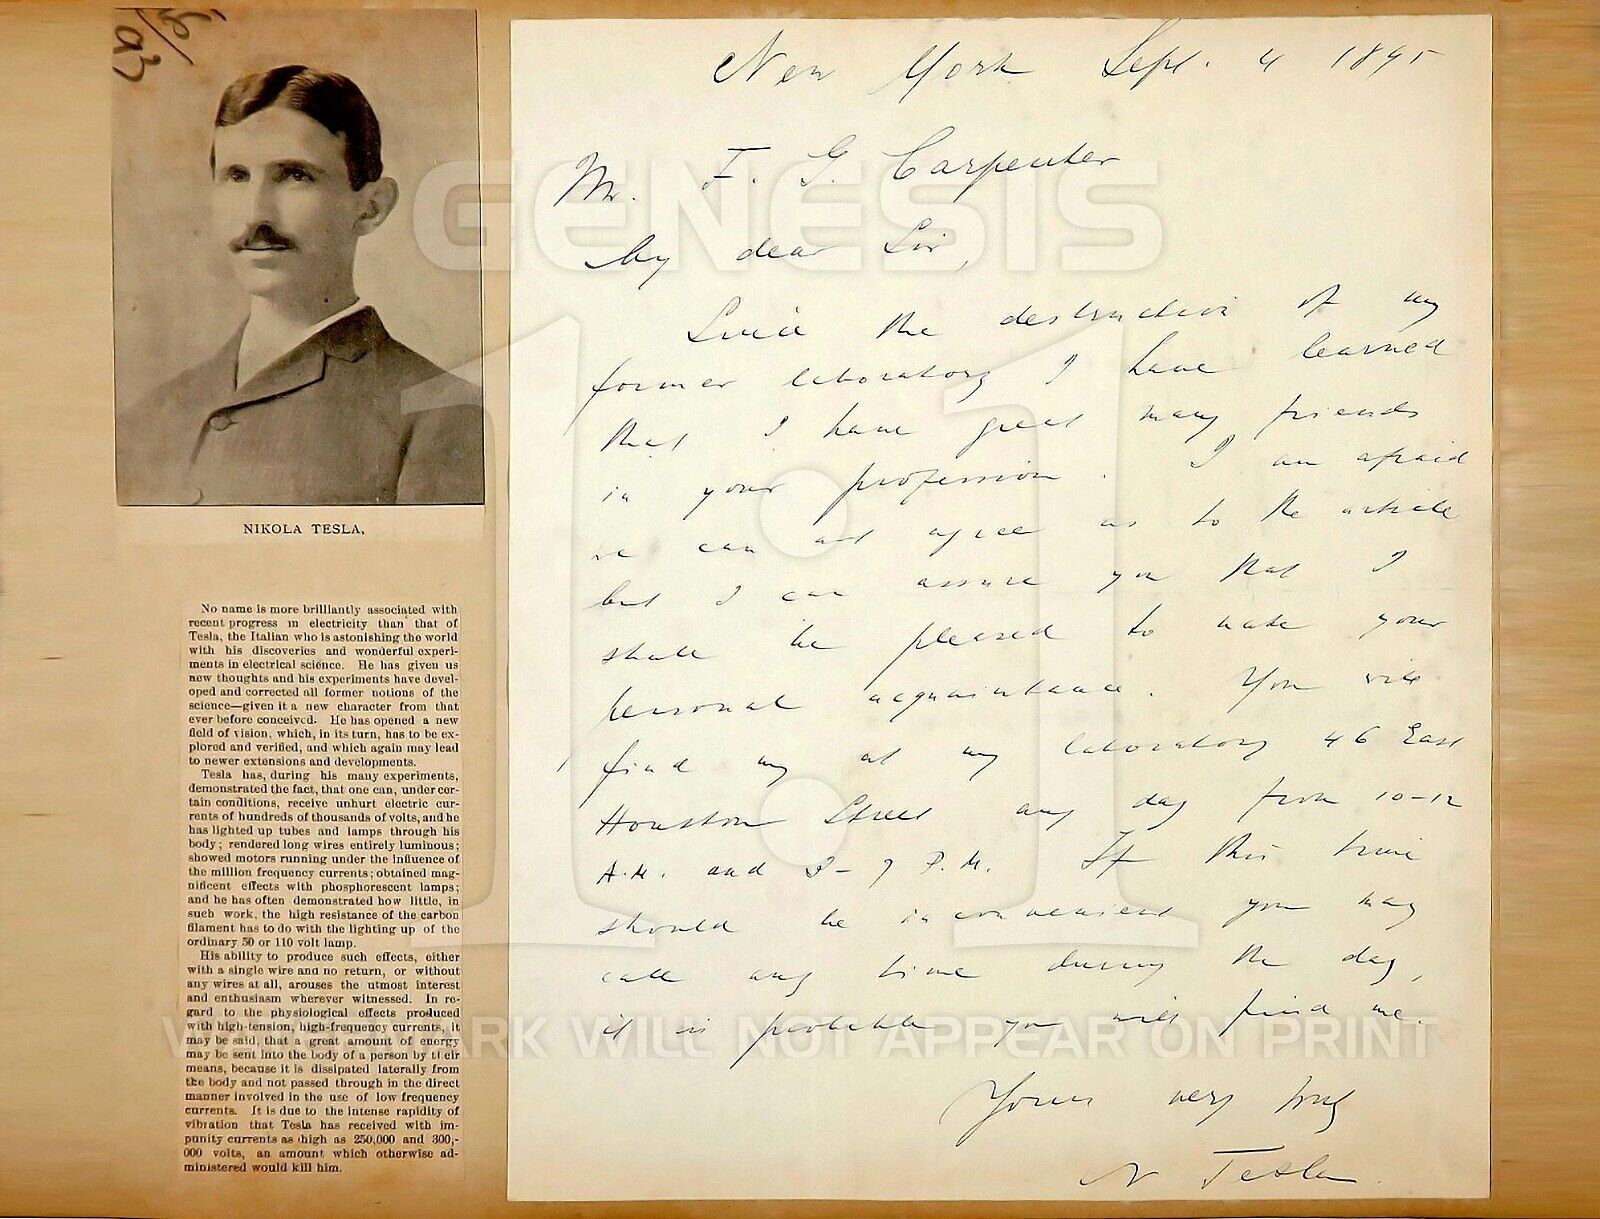 93
NIKOLA TESLA,
No name is more brilliantly associated with
recent progress in electricity than that of
Tesla, the Italian who is astonishing the world
with his discoveries and wonderful experi-
ments in electrical science. He has given us
new thoughts and his experiments have devel-
oped and corrected all former notions of the
science—given it a new character from that
ever before conceived. He has opened a new
field of vision, which, in its turn, has to be ex-
plored and verified, and which again may lead
to newer extensions and developments.
Tesla has, during his many experiments,
demonstrated the fact, that one can, under cer-
tain conditions, receive unhurt electric cur-
rents of hundreds of thousands of volts, and he
has lighted up tubes and lamps through his
body; rendered long wires entirely luminous;
showed motors running under the influence of
the million frequency currents; obtained mag-
nificent effects with phosphorescent lamps;
and he has often demonstrated how little, in
such work, the high resistance of the carbon
filament has to do with the lighting up of the
ordinary 50 or 110 volt lamp.
His ability to produce such effects, either
with a single wire and no return, or without
any wires at all, arouses the utmost interest
and enthusiasm wherever witnessed. In re-
gard to the physiological effects produced
with high-tension, high-frequency currents, it
may be said, that a great amount of energy
may be sent into the body of a person by their
means, because it is dissipated laterally from
the body and not passed through in the direct
manner involved in the use of low frequency
currents. It is due to the intense rapidity of
vibration that Tesla has received with im-
punity currents as high as 250,000 and 300,-
000 volts, an amount which otherwise ad-
ministered would kill him.
New York Sept. 4 1895
Mr. F. G. Carpenter
My dear Sir,
Since the destruction of my
former laboratory I have learned
that I have great many friends
in your profession. I am afraid
we can not agree as to the article
but I can assure you that I
shall be pleased to make your
personal acquaintance. You will
find my at my laboratory 46 East
Houston Street any day from 10-12
A.M. and P.M. If this time
should be inconvenient you may
call any time during the day,
it is probable you will find me.
Yours very truly
N Tesla
GENESIS
1:1
WATERMARK WILL NOT APPEAR ON PRINT